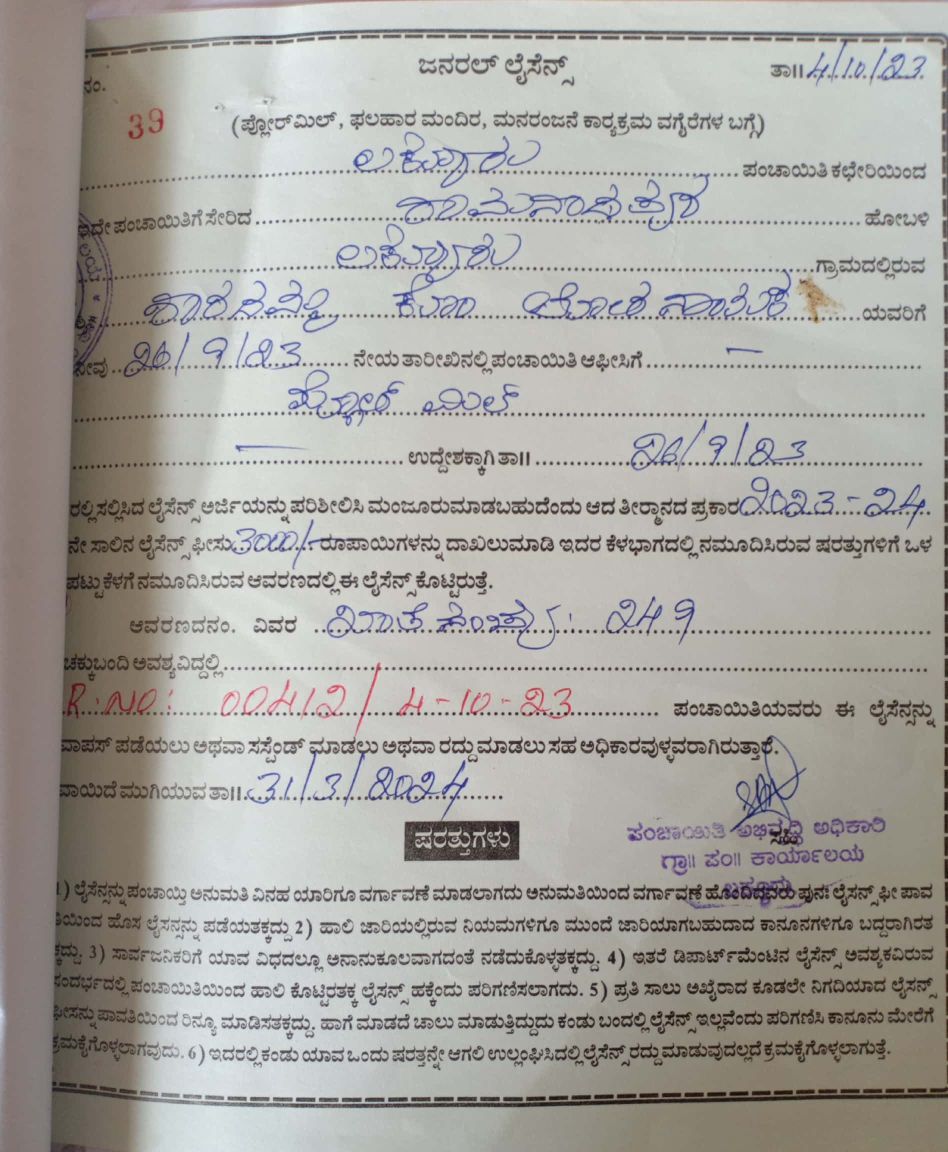 ಜನರಲ್ ಲೈಸೆನ್ಸ್
ನಂ. 39 ತಾ॥ 4/10/23
(ಫ್ಲೋರ್‌ಮಿಲ್, ಫಲಹಾರ ಮಂದಿರ, ಮನರಂಜನೆ ಕಾರ್‍ಯಕ್ರಮ ವಗೈರೆಗಳ ಬಗ್ಗೆ)
ಪಂಚಾಯಿತಿ ಕಛೇರಿಯಿಂದ
ಇದೇ ಪಂಚಾಯಿತಿಗೆ ಸೇರಿದ ಹೋಬಳಿ
ಗ್ರಾಮದಲ್ಲಿರುವ
ಯವರಿಗೆ
ನೀವು 26/9/23 ನೇಯ ತಾರೀಖಿನಲ್ಲಿ ಪಂಚಾಯಿತಿ ಆಫೀಸಿಗೆ —
ಮಿಲ್
— ಉದ್ದೇಶಕ್ಕಾಗಿ ತಾ॥ 26/9/23
ರಲ್ಲಿ ಸಲ್ಲಿಸಿದ ಲೈಸೆನ್ಸ್ ಅರ್ಜಿಯನ್ನು ಪರಿಶೀಲಿಸಿ ಮಂಜೂರುಮಾಡಬಹುದೆಂದು ಆದ ತೀರ್ಮಾನದ ಪ್ರಕಾರ 2023-24
ನೇ ಸಾಲಿನ ಲೈಸೆನ್ಸ್ ಫೀಸು 3000/- ರೂಪಾಯಿಗಳನ್ನು ದಾಖಲುಮಾಡಿ ಇದರ ಕೆಳಭಾಗದಲ್ಲಿ ನಮೂದಿಸಿರುವ ಷರತ್ತುಗಳಿಗೆ ಒಳ
ಪಟ್ಟು ಕೆಳಗೆ ನಮೂದಿಸಿರುವ ಆವರಣದಲ್ಲಿ ಈ ಲೈಸೆನ್ಸ್ ಕೊಟ್ಟಿರುತ್ತೆ.
ಆವರಣದನಂ. ವಿವರ ಖಾತೆ ಸಂಖ್ಯೆ: 249
ಚಕ್ಕುಬಂದಿ ಅವಶ್ಯವಿದ್ದಲ್ಲಿ
R.NO: 00412/4-10-23 ಪಂಚಾಯಿತಿಯವರು ಈ ಲೈಸೆನ್ಸನ್ನು
ವಾಪಸ್ ಪಡೆಯಲು ಅಥವಾ ಸಸ್ಪೆಂಡ್ ಮಾಡಲು ಅಥವಾ ರದ್ದು ಮಾಡಲು ಸಹ ಅಧಿಕಾರವುಳ್ಳವರಾಗಿರುತ್ತಾರೆ.
ವಾಯಿದೆ ಮುಗಿಯುವ ತಾ॥ 31/3/2024
ಪಂಚಾಯಿತಿ ಅಭಿವೃದ್ಧಿ ಅಧಿಕಾರಿ
ಗ್ರಾ॥ ಪಂ॥ ಕಾರ್ಯಾಲಯ
ಷರತ್ತುಗಳು
1) ಲೈಸೆನ್ಸನ್ನು ಪಂಚಾಯ್ತಿ ಅನುಮತಿ ವಿನಹ ಯಾರಿಗೂ ವರ್ಗಾವಣೆ ಮಾಡಲಾಗದು ಅನುಮತಿಯಿಂದ ವರ್ಗಾವಣೆ ಹೊಂದಿದವರು ಪುನಃ ಲೈಸನ್ಸ್ ಫೀ ಪಾವ
ತಿಯಿಂದ ಹೊಸ ಲೈಸನ್ಸನ್ನು ಪಡೆಯತಕ್ಕದ್ದು 2) ಹಾಲಿ ಜಾರಿಯಲ್ಲಿರುವ ನಿಯಮಗಳಿಗೂ ಮುಂದೆ ಜಾರಿಯಾಗಬಹುದಾದ ಕಾನೂನಗಳಿಗೂ ಬದ್ದರಾಗಿರತ
ಕ್ಕದ್ದು. 3) ಸಾರ್ವಜನಿಕರಿಗೆ ಯಾವ ವಿಧದಲ್ಲೂ ಅನಾನುಕೂಲವಾಗದಂತೆ ನಡೆದುಕೊಳ್ಳತಕ್ಕದ್ದು. 4) ಇತರೆ ಡಿಪಾರ್ಟ್‌ಮೆಂಟಿನ ಲೈಸೆನ್ಸ್ ಅವಶ್ಯಕವಿರುವ
ಸಂದರ್ಭದಲ್ಲಿ ಪಂಚಾಯಿತಿಯಿಂದ ಹಾಲಿ ಕೊಟ್ಟಿರತಕ್ಕ ಲೈಸೆನ್ಸ್ ಹಕ್ಕೆಂದು ಪರಿಗಣಿಸಲಾಗದು. 5) ಪ್ರತಿ ಸಾಲು ಅಖೈರಾದ ಕೂಡಲೇ ನಿಗದಿಯಾದ ಲೈಸೆನ್ಸ್
ಫೀಸನ್ನು ಪಾವತಿಯಿಂದ ರಿನ್ಯೂ ಮಾಡಿಸತಕ್ಕದ್ದು. ಹಾಗೆ ಮಾಡದೆ ಚಾಲು ಮಾಡುತ್ತಿದ್ದುದು ಕಂಡು ಬಂದಲ್ಲಿ ಲೈಸೆನ್ಸ್ ಇಲ್ಲವೆಂದು ಪರಿಗಣಿಸಿ ಕಾನೂನು ಮೇರೆಗೆ
ಕ್ರಮಕೈಗೊಳ್ಳಲಾಗವುದು. 6) ಇದರಲ್ಲಿ ಕಂಡು ಯಾವ ಒಂದು ಷರತ್ತನ್ನೇ ಆಗಲಿ ಉಲ್ಲಂಘಿಸಿದಲ್ಲಿ ಲೈಸೆನ್ಸ್ ರದ್ದು ಮಾಡುವುದಲ್ಲದೆ ಕ್ರಮಕೈಗೊಳ್ಳಲಾಗುತ್ತೆ.